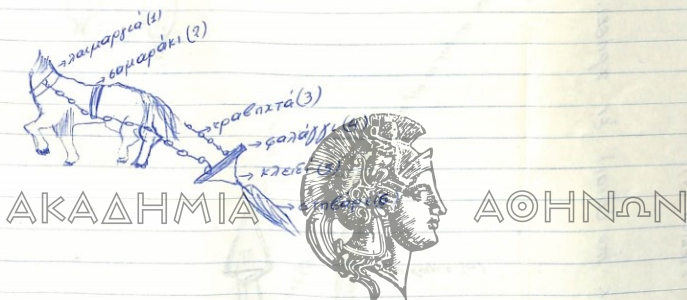 λαιμαργιά (1)
σαμαράκι (2)
τραβηχτά (3)
φαλάγγι
κλειδί
ΑΚΑΔΗΜΙΑ ΑΘΗΝΩΝ